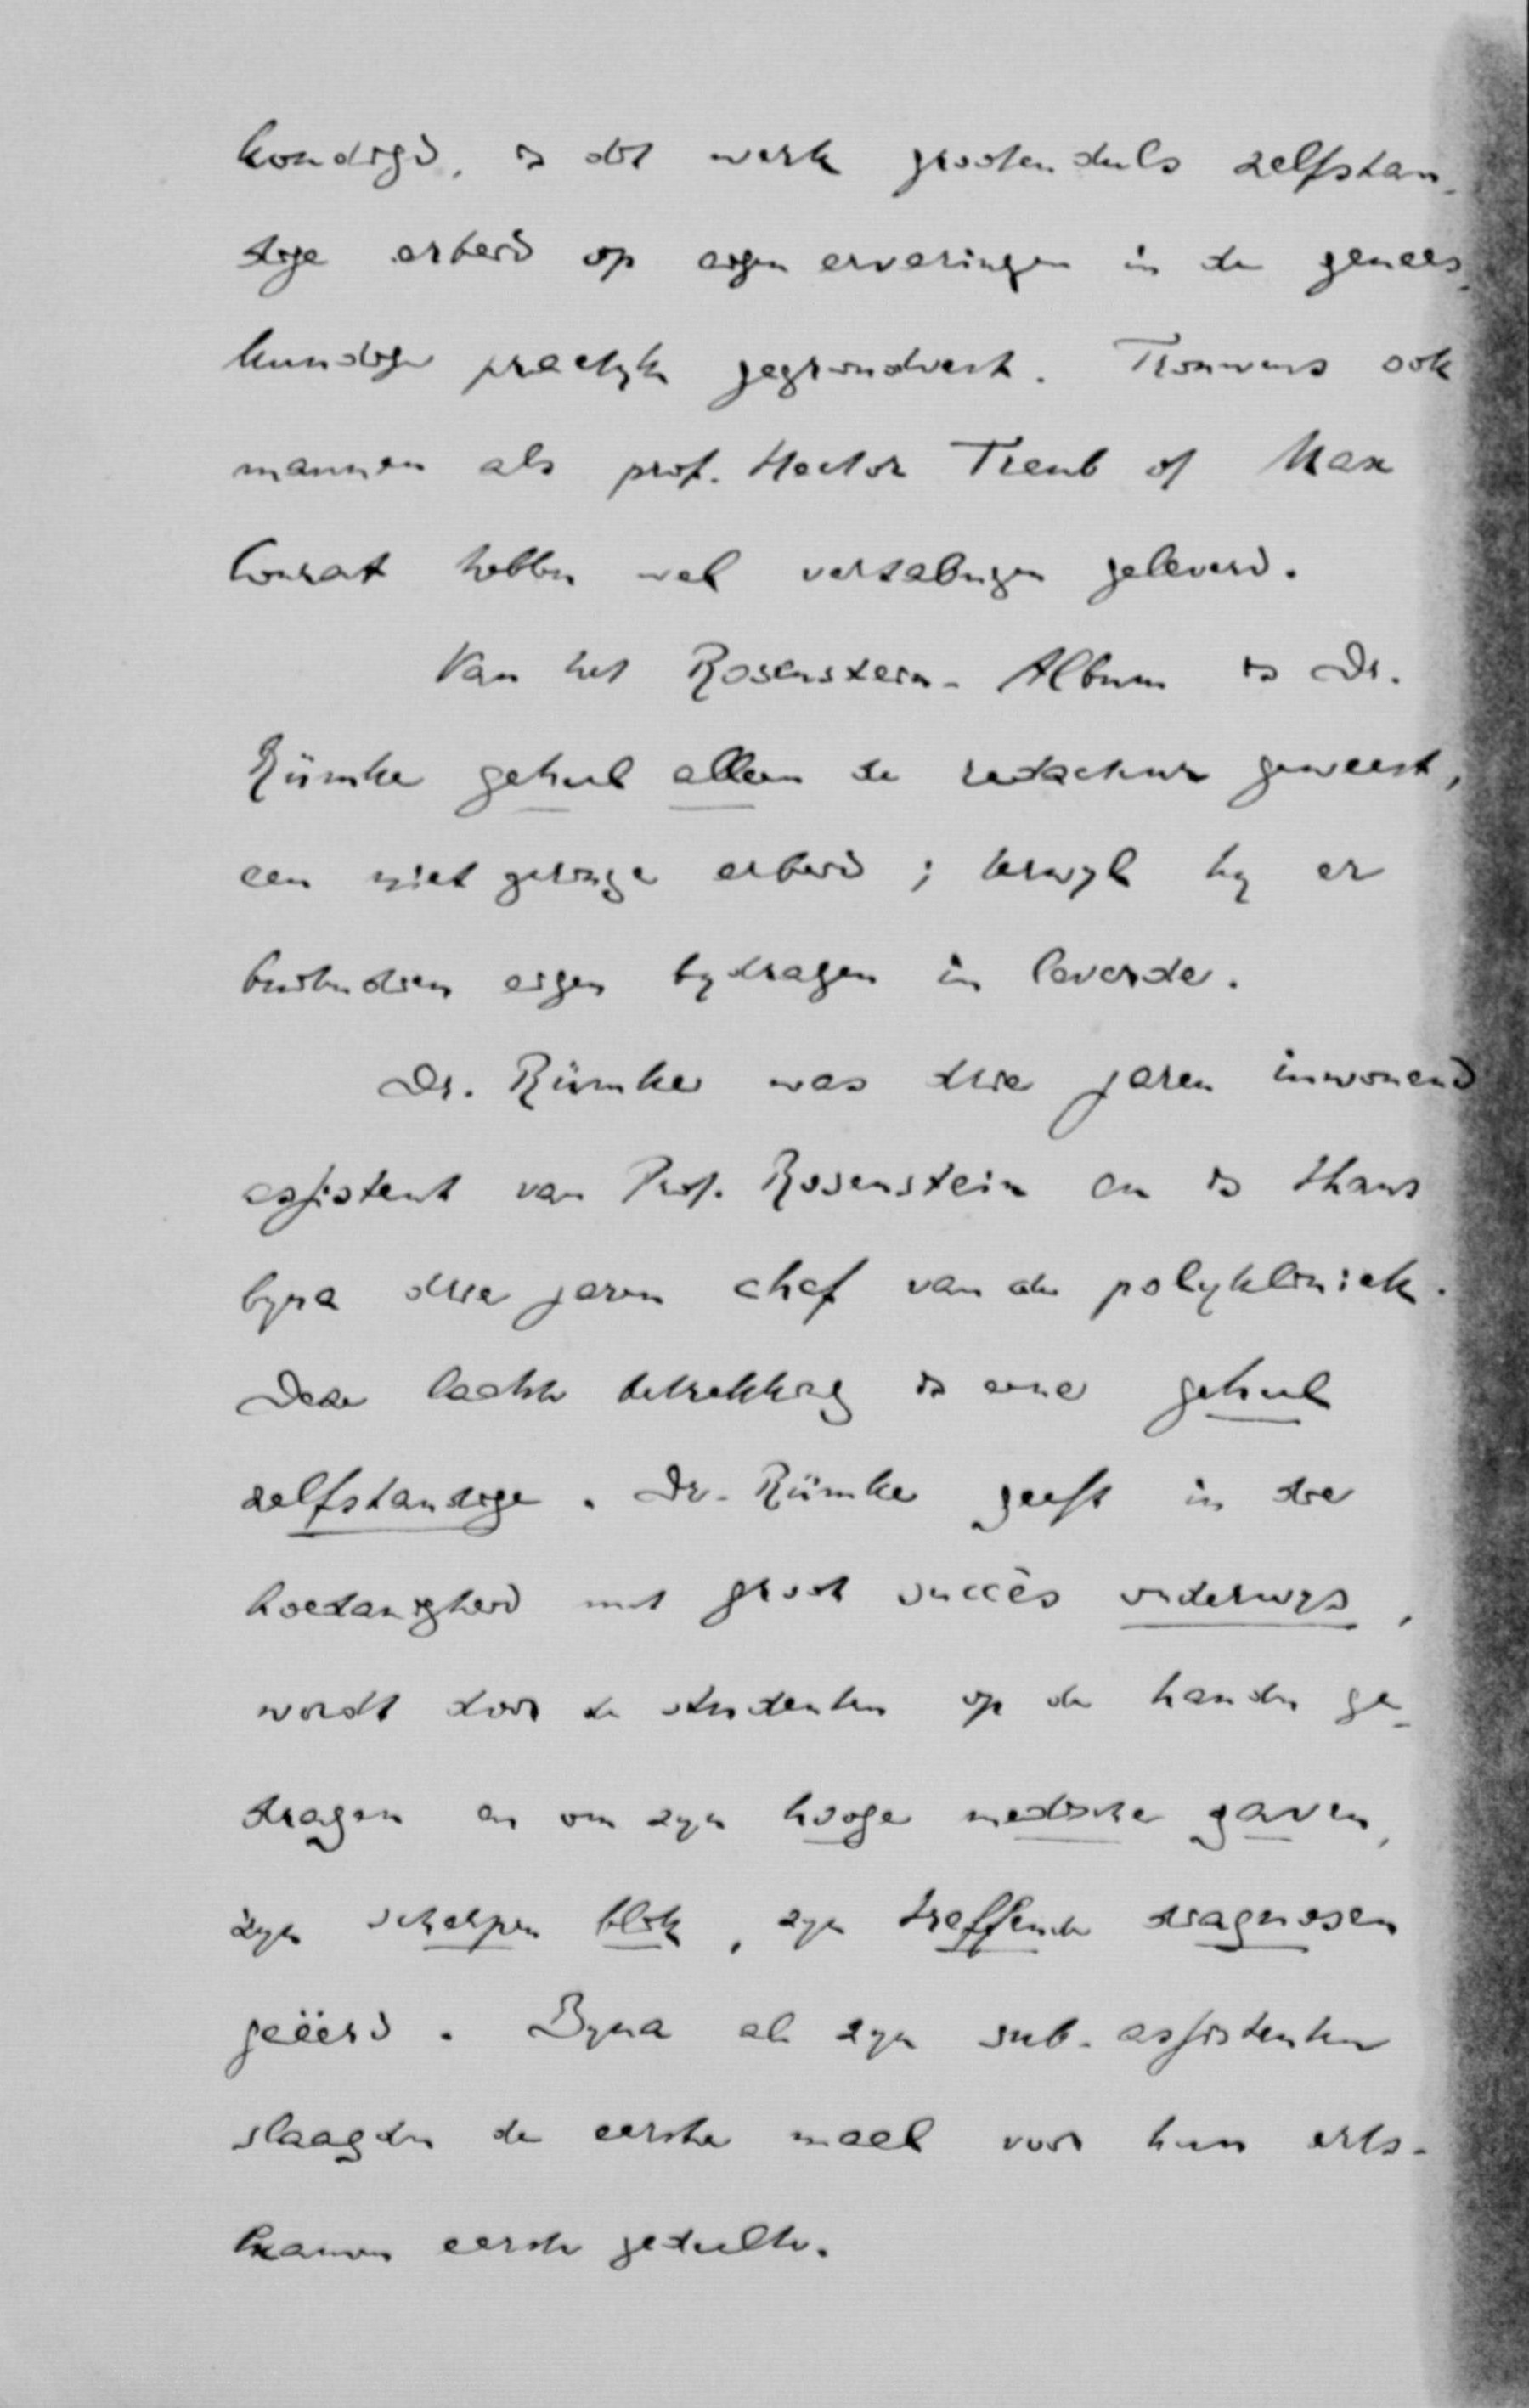 kondigd, is dit werk grootendeels zelfstan-
dige arbeid op eigen ervaringen in de genees-
kundige practyk gegrondvest. Trouwens ook
mannen als prof. Hector Treub of Max
Conrat hebben wel vertalingen geleverd.
Van het Rosenstein-Album is Dr.
Rümke geheel alleen de redacteur geweest,
een niet geringe arbeid; terwyl hy er
buitendien eigen bydragen in leverde.
Dr. Rümke was drie jaren inwonend
assistent van Prof. Rosenstein en is thans
byna drie jaren chef van de polykliniek.
Deze laatste betrekking is eene geheel
zelfstandige. Dr. Rümke geeft in die
hoedanigheid met groot succès onderwys,
wordt door de studenten op de handen ge-
dragen en om zyn hooge medische gaven,
zyn scherpen blik, zyn treffende diagnosen
geëerd. Byna al zyn sub-assistenten
slaagden de eerste maal voor hun arts-
examen eerste gedeelte.